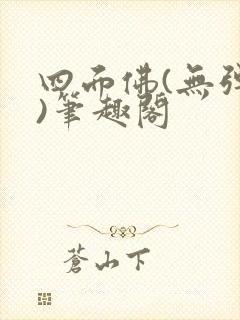 四面佛(無彈
)筆趣閣
蒼山下